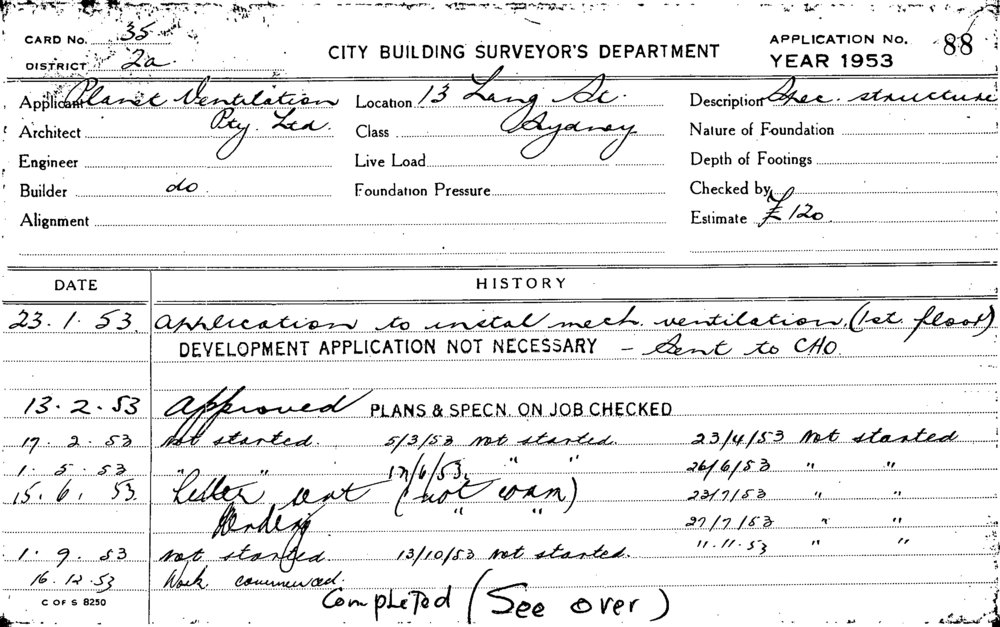 CARD No. 35
DISTRICT 2a
CITY BUILDING SURVEYOR'S DEPARTMENT
APPLICATION No. 88
YEAR 1953
Applicant Planet Ventilation Pty. Ltd.
Architect
Engineer
Builder do
Alignment
Location 13 Lang St. Sydney
Class
Live Load
Foundation Pressure
Description Spec. structure
Nature of Foundation
Depth of Footings
Checked by
Estimate £120
DATE HISTORY
23.1.53 Application to instal mech. ventilation. (1st. floor)
DEVELOPMENT APPLICATION NOT NECESSARY - Sent to CHO
13.2.53 Approved PLANS & SPECN. ON JOB CHECKED
17.2.53 Not started. 5/3/53 Not started. 23/4/53 Not started
1.5.53 " " 17/6/53 " " 26/6/53 " "
15.6.53 Letter (not com) 23/7/53 " "
Pending " " 27/7/53 " "
1.9.53 Not started. 13/10/53 Not started. 11.11.53 " "
16.12.53 Work commenced.
Completed (See over)
C OF S 8250